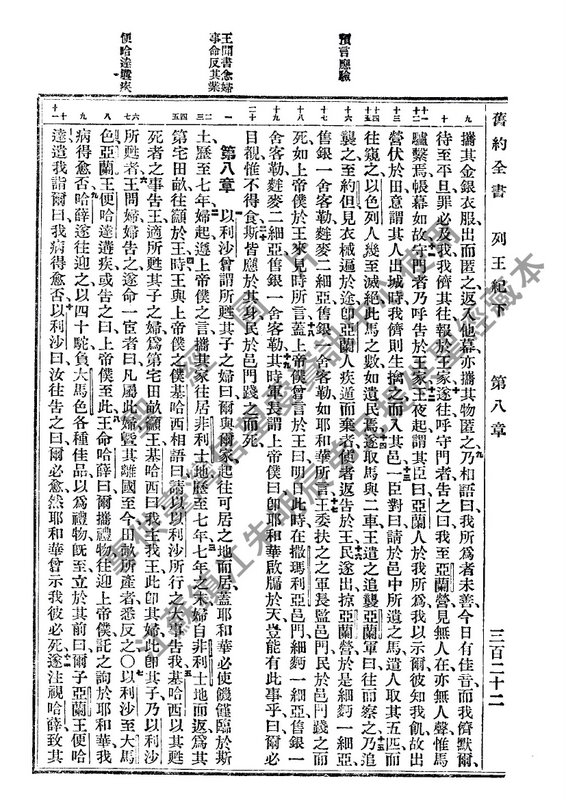 舊約全書 列王紀下 第八章 三百二十二
預言應驗
王聞書念婦
事命反其業
便哈達遘疾
九 攜其金銀衣服出而匿之返入他幕亦攜其物匿之乃相語曰我所為者未善今日有佳音而我儕默爾
十 待至平旦罪必及我我儕其往報於王家遂往呼守門者告之曰我至亞蘭營見無人在亦無人聲惟馬
十一 十二 驢繫焉帳幕如故守門者乃呼告於王家王夜起謂其臣曰亞蘭人於我所為我以示爾彼知我飢故出
十三 營伏於田意謂其人出城時我儕則生擒之而入其邑一臣對曰請於邑中所遺之馬遣人取其五匹而
十四 十五 往窺之以色列人幾至滅絕此馬之數如遺民焉遂取馬與二車王遣之追襲亞蘭軍曰往而察之乃追
十六 襲之至約但見衣械遍於途即亞蘭人疾遁而棄者使者返告於王民遂出掠亞蘭營於是細麪一細亞
十七 售銀一舍客勒麰麥二細亞售銀一舍客勒如耶和華所言王委扶之之軍長監邑門民於邑門踐之而
十八 死如上帝僕於王來見時所言蓋上帝僕曾言於王曰明日此時在撒瑪利亞邑門細麪一細亞售銀一
十九 舍客勒麰麥二細亞售銀一舍客勒其時軍長謂上帝僕曰即耶和華啟牖於天豈能有此事乎曰爾必
二十 目覩惟不得食斯皆應於其身民於邑門踐之而死
一 第八章 以利沙曾謂所甦其子之婦曰爾與爾家起往可居之地而居蓋耶和華必使饑饉臨於斯
二 三 土歷至七年婦起遵上帝僕之言攜其家往居非利士地歷至七年七年之末婦自非利士地而返為其
四 五 第宅田畝往籲於王時王與上帝僕之僕基哈西相語曰請以以利沙所行之大事告我基哈西以其甦
死者之事告王適所甦其子之婦為第宅田畝籲王基哈西曰我主我王此即其婦此即其子乃以利沙
六 七 所甦者王問婦婦告之遂命一宦者曰凡屬此婦曁其離國至今田畝所產者悉反之〇以利沙至大馬
八 色亞蘭王便哈達遘疾或告之曰上帝僕至此王命哈薛曰爾攜禮物往迎上帝僕託之詢於耶和華我
九 病得愈否哈薛遂往迎之以四十駝負大馬色各種佳品以為禮物旣至立於其前曰爾子亞蘭王便哈
十 十一 達遣我詣爾曰我病得愈否以利沙曰汝往告之曰爾必愈然耶和華曾示我彼必死遂注視哈薛致其